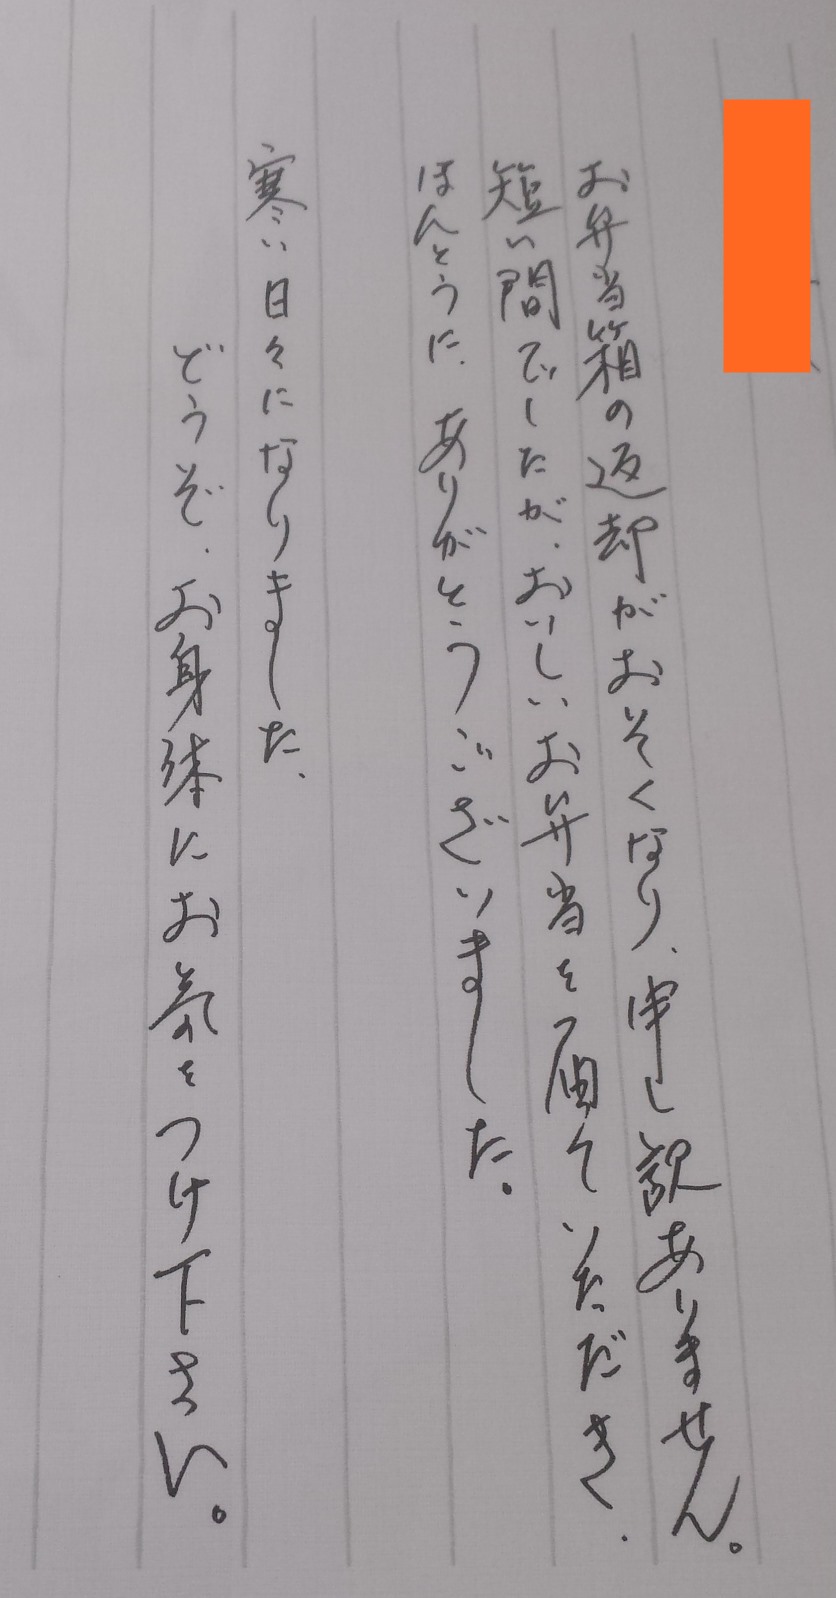 お弁当箱の返却がおそくなり、申し訳ありません。
短い間でしたが、おいしいお弁当を届けていただき、
ほんとうに、ありがとうございました。
寒い日々になりました、
どうぞ、お身体にお気をつけ下さい。